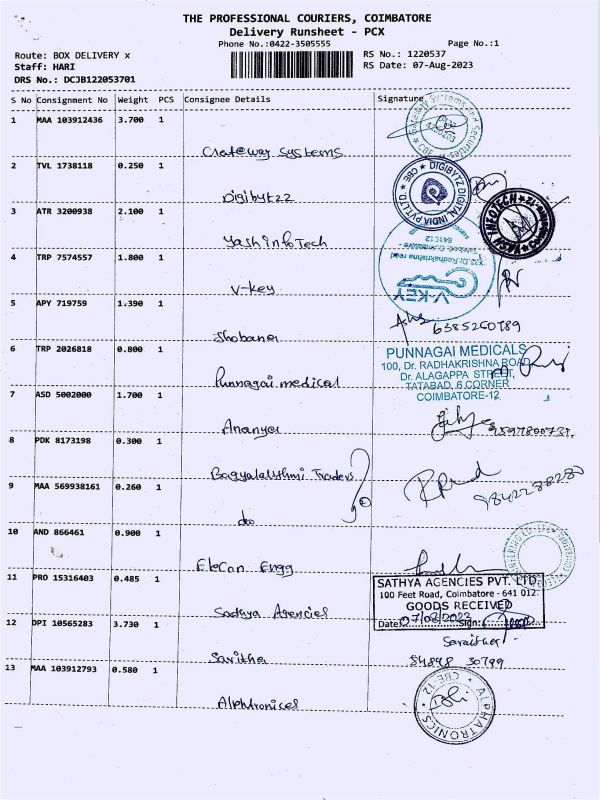 THE PROFESSIONAL COURIERS, COIMBATORE
Delivery Runsheet - PCX
Phone No.:0422-3505555
Page No.:1
Route: BOX DELIVERY x
RS No.: 1220537
Staff: HARI
RS Date: 07-Aug-2023
DRS No.: DCJB122053701
S No Consignment No Weight PCS Consignee Details Signature
1 MAA 103912436 3.700 1
Gateway Systems
2 TVL 1738118 0.250 1
Digibytzz
3 ATR 3200938 2.100 1
Yash infoTech
4 TRP 7574557 1.800 1
V-key
5 APY 719759 1.390 1
Shobana
6385260789
6 TRP 2026818 0.800 1
Punnagai medical
PUNNAGAI MEDICALS
100, Dr. RADHAKRISHNA ROAD
Dr. ALAGAPPA STREET,
TATABAD, 6 CORNER
COIMBATORE-12
7 ASD 5002000 1.700 1
Ananya
8 PDK 8173198 0.300 1
Bagyalakshmi Traders
9 MAA 569938161 0.260 1
do
9842288280
10 AND 866461 0.900 1
EleCon Engg
11 PRO 15316403 0.485 1
Sathya Agencies
SATHYA AGENCIES PVT. LTD.
100 Feet Road, Coimbatore - 641 012.
GOODS RECEIVED
Date: 07/08/2023 Sign:
12 DPI 10565283 3.730 1
Savitha
13 MAA 103912793 0.580 1
Alphtronices
DIGIBYTZ DIGITAL INDIA PVT LTD
CBE
YASH INFOTECH
V-KEY
ALPHATRONICS
CBE-12